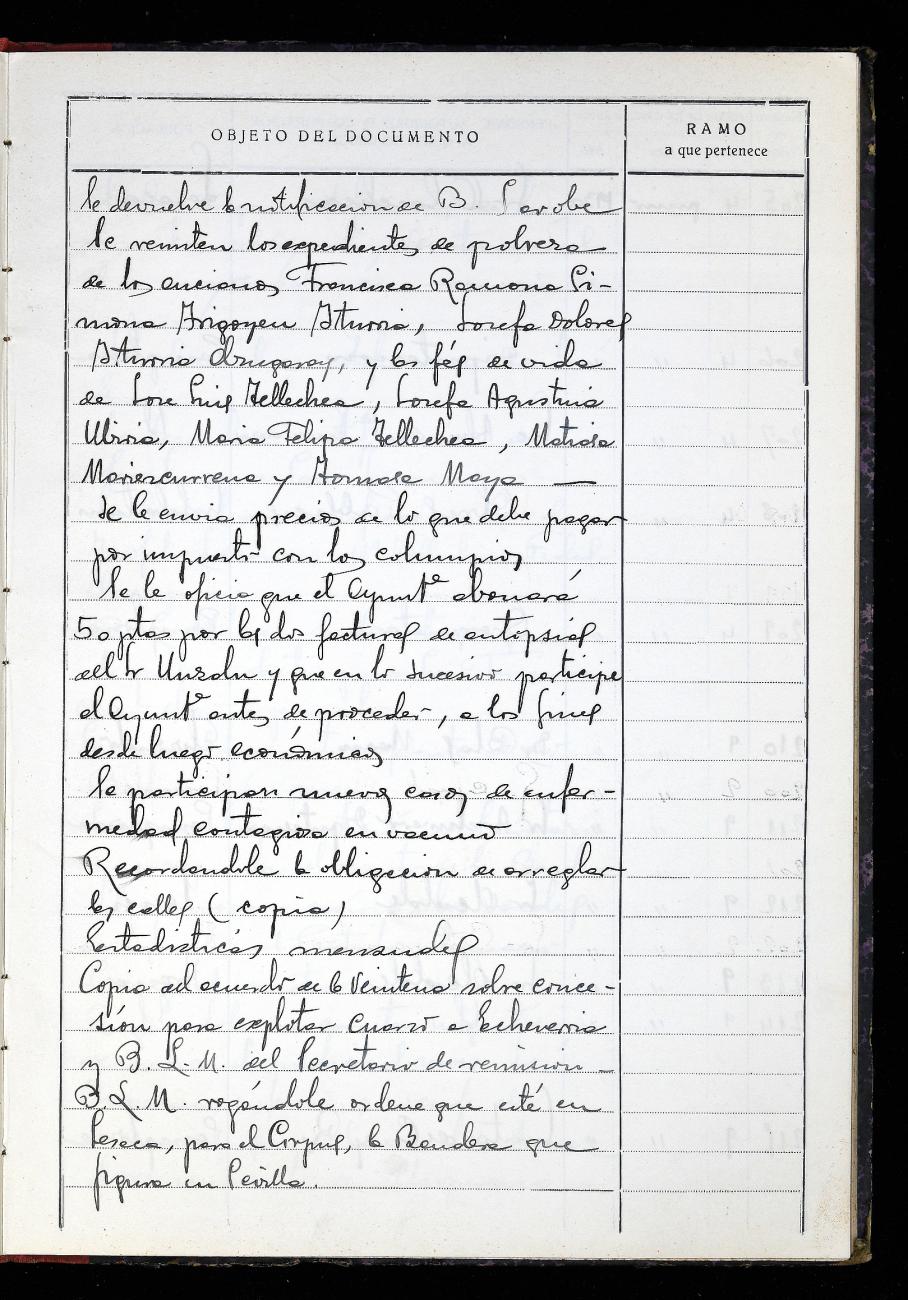 OBJETO DEL DOCUMENTO
RAMO
a que pertenece
Se devuelve la notificacion de B. Sarobe
Se remiten los expedientes de pobreza
de los ancianos Francisca Ramona Si-
mona Irigoyen Iturria, Josefa Dolores
Iturria, y las fés de vida
de Jose Luis Tellechea, Josefa Agustina
Ubiria, Maria Felipa Tellechea, Matiasa
Mariezcurrena y Tomasa Maya —
Se le envia precios de lo que debe pagar
por impuesto con los columpios
Se le oficia que el Ayuntº abonará
50 ptas por las dos facturas de autopsias
del Sr Unzalu y que en lo sucesivo participe
al Ayuntº antes de proceder, a los fines
desde luego económicos
Se participan nuevos casos de enfer-
medad contagiosa en vacuno
Recordandole la obligacion de arreglar
las calles (copia)
Estadisticas mensuales
Copia del acuerdo de la Veintena sobre conce-
sión para explotar Cuarzo a Echeverria
y B. L. M. del Secretario de remision —
B. L. M. rogándole ordene que esté en
Lesaca, para el Corpus, la Bandera que
figura en Sevilla.